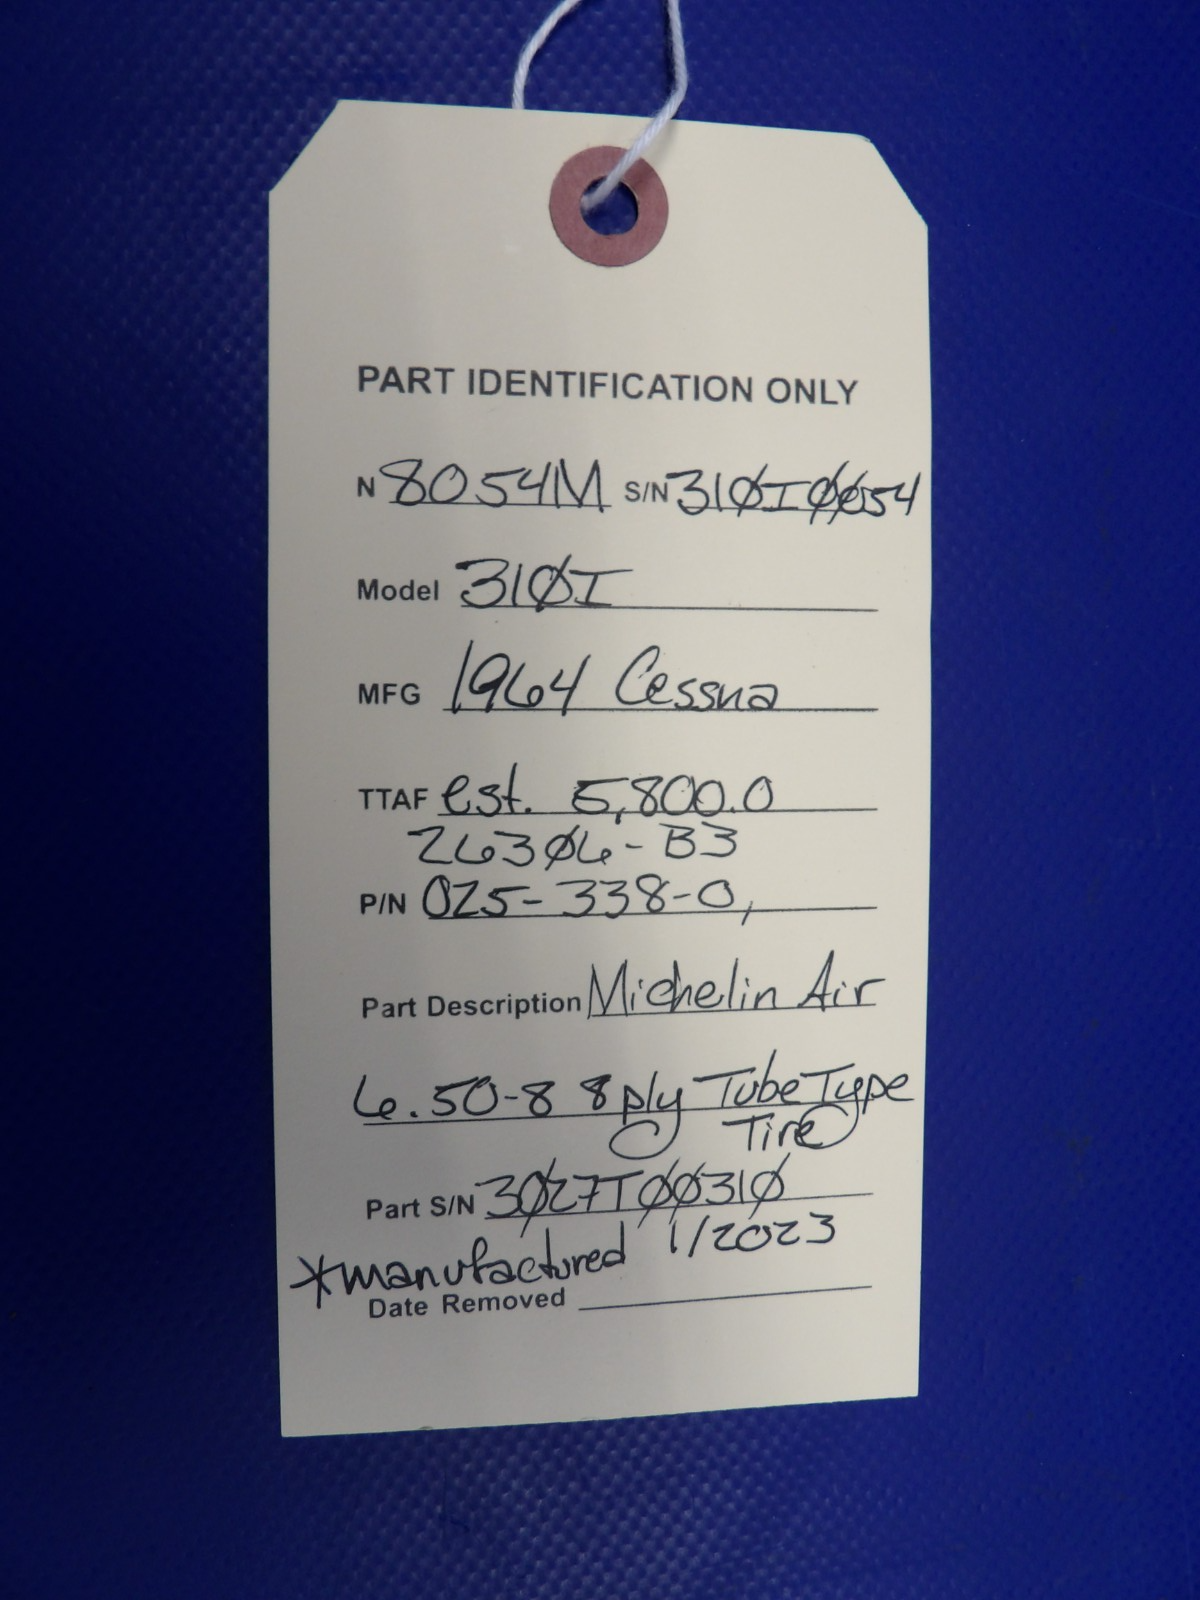 PART IDENTIFICATION ONLY
N 8054M S/N 310I0054
Model 310I
MFG 1964 Cessna
TTAF est. 5,800.0
26306-B3
P/N 025-338-0,
Part Description Michelin Air
6.50-8 8ply Tube Type
Tire
Part S/N 3027T00310
*manufactured 1/2023
Date Removed